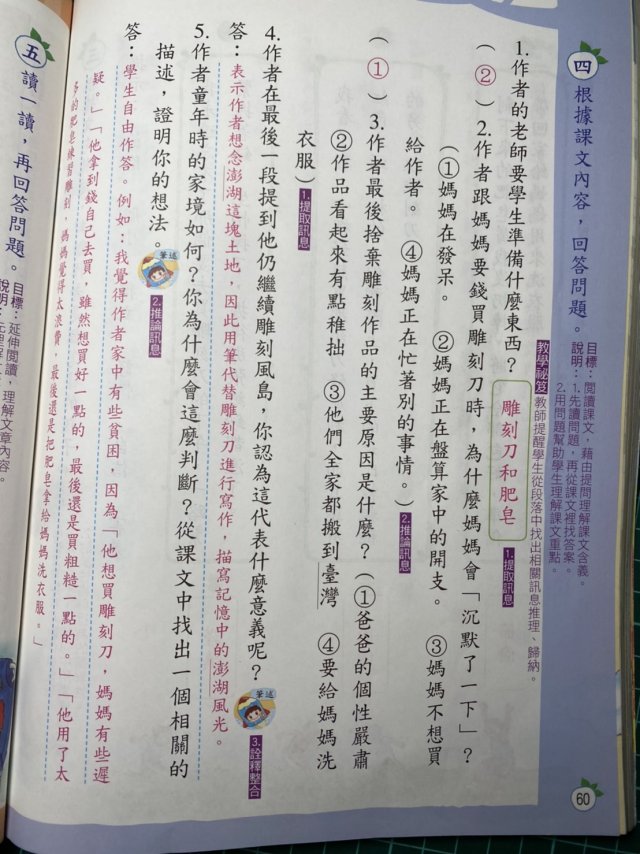 四 根據課文內容，回答問題。
目標：閱讀課文，藉由提問理解課文含義。
說明：1.先讀問題，再從課文裡找答案。
2.用問題幫助學生理解課文重點。
教學祕笈 教師提醒學生從段落中找出相關訊息推理、歸納。
1.作者的老師要學生準備什麼東西？ 雕刻刀和肥皂 1.提取訊息
（ ② ）2.作者跟媽媽要錢買雕刻刀時，為什麼媽媽會「沉默了一下」？
（①媽媽在發呆。 ②媽媽正在盤算家中的開支。 ③媽媽不想買
給作者。 ④媽媽正在忙著別的事情。）2.推論訊息
（ ① ）3.作者最後捨棄雕刻作品的主要原因是什麼？（①爸爸的個性嚴肅
②作品看起來有點稚拙 ③他們全家都搬到臺灣 ④要給媽媽洗
衣服）1.提取訊息
4.作者在最後一段提到他仍繼續雕刻風島，你認為這代表什麼意義呢？ 筆述 3.詮釋整合
答：表示作者想念澎湖這塊土地，因此用筆代替雕刻刀進行寫作，描寫記憶中的澎湖風光。
5.作者童年時的家境如何？你為什麼會這麼判斷？從課文中找出一個相關的
描述，證明你的想法。 筆述 2.推論訊息
答：學生自由作答。例如：我覺得作者家中有些貧困，因為「他想買雕刻刀，媽媽有些遲
疑。」「他拿到錢自己去買，雖然想買好一點的，最後還是買粗糙一點的。」「他用了太
多的肥皂練習雕刻，媽媽覺得太浪費，最後還是把肥皂拿給媽媽洗衣服。」
五 讀一讀，再回答問題。
目標：延伸閱讀，理解文章內容。
60